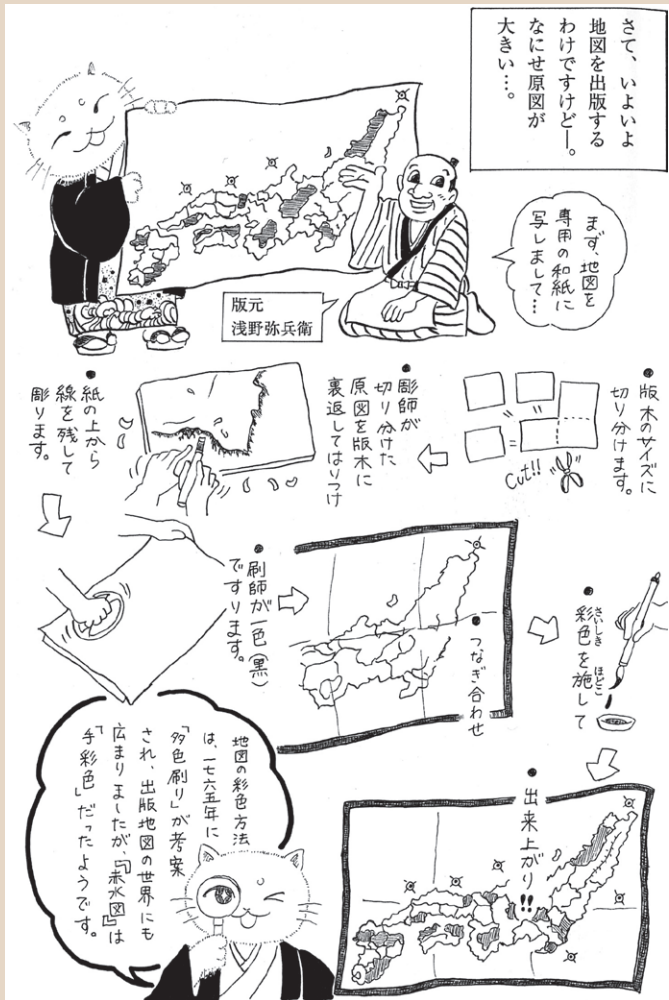 さて、いよいよ
地図を出版する
わけですけどー。
なにせ原図が
大きい…。
まず、地図を
専用の和紙に
写しまして…
版元
浅野弥兵衛
●版木のサイズに
切り分けます。
Cut!!
●彫師が
切り分けた
原図を版木に
裏返してはりつけ
●紙の上から
線を残して
彫ります。
●刷師が一色(黒)
ですります。
●つなぎ合わせ
●彩色を施して
さいしき ほどこ
●出来上がり!!
地図の彩色方法
は、一七六五年に
「多色刷り」が考案
され、出版地図の世界にも
広まりましたが、『赤水図』は
「手彩色」だったようです。